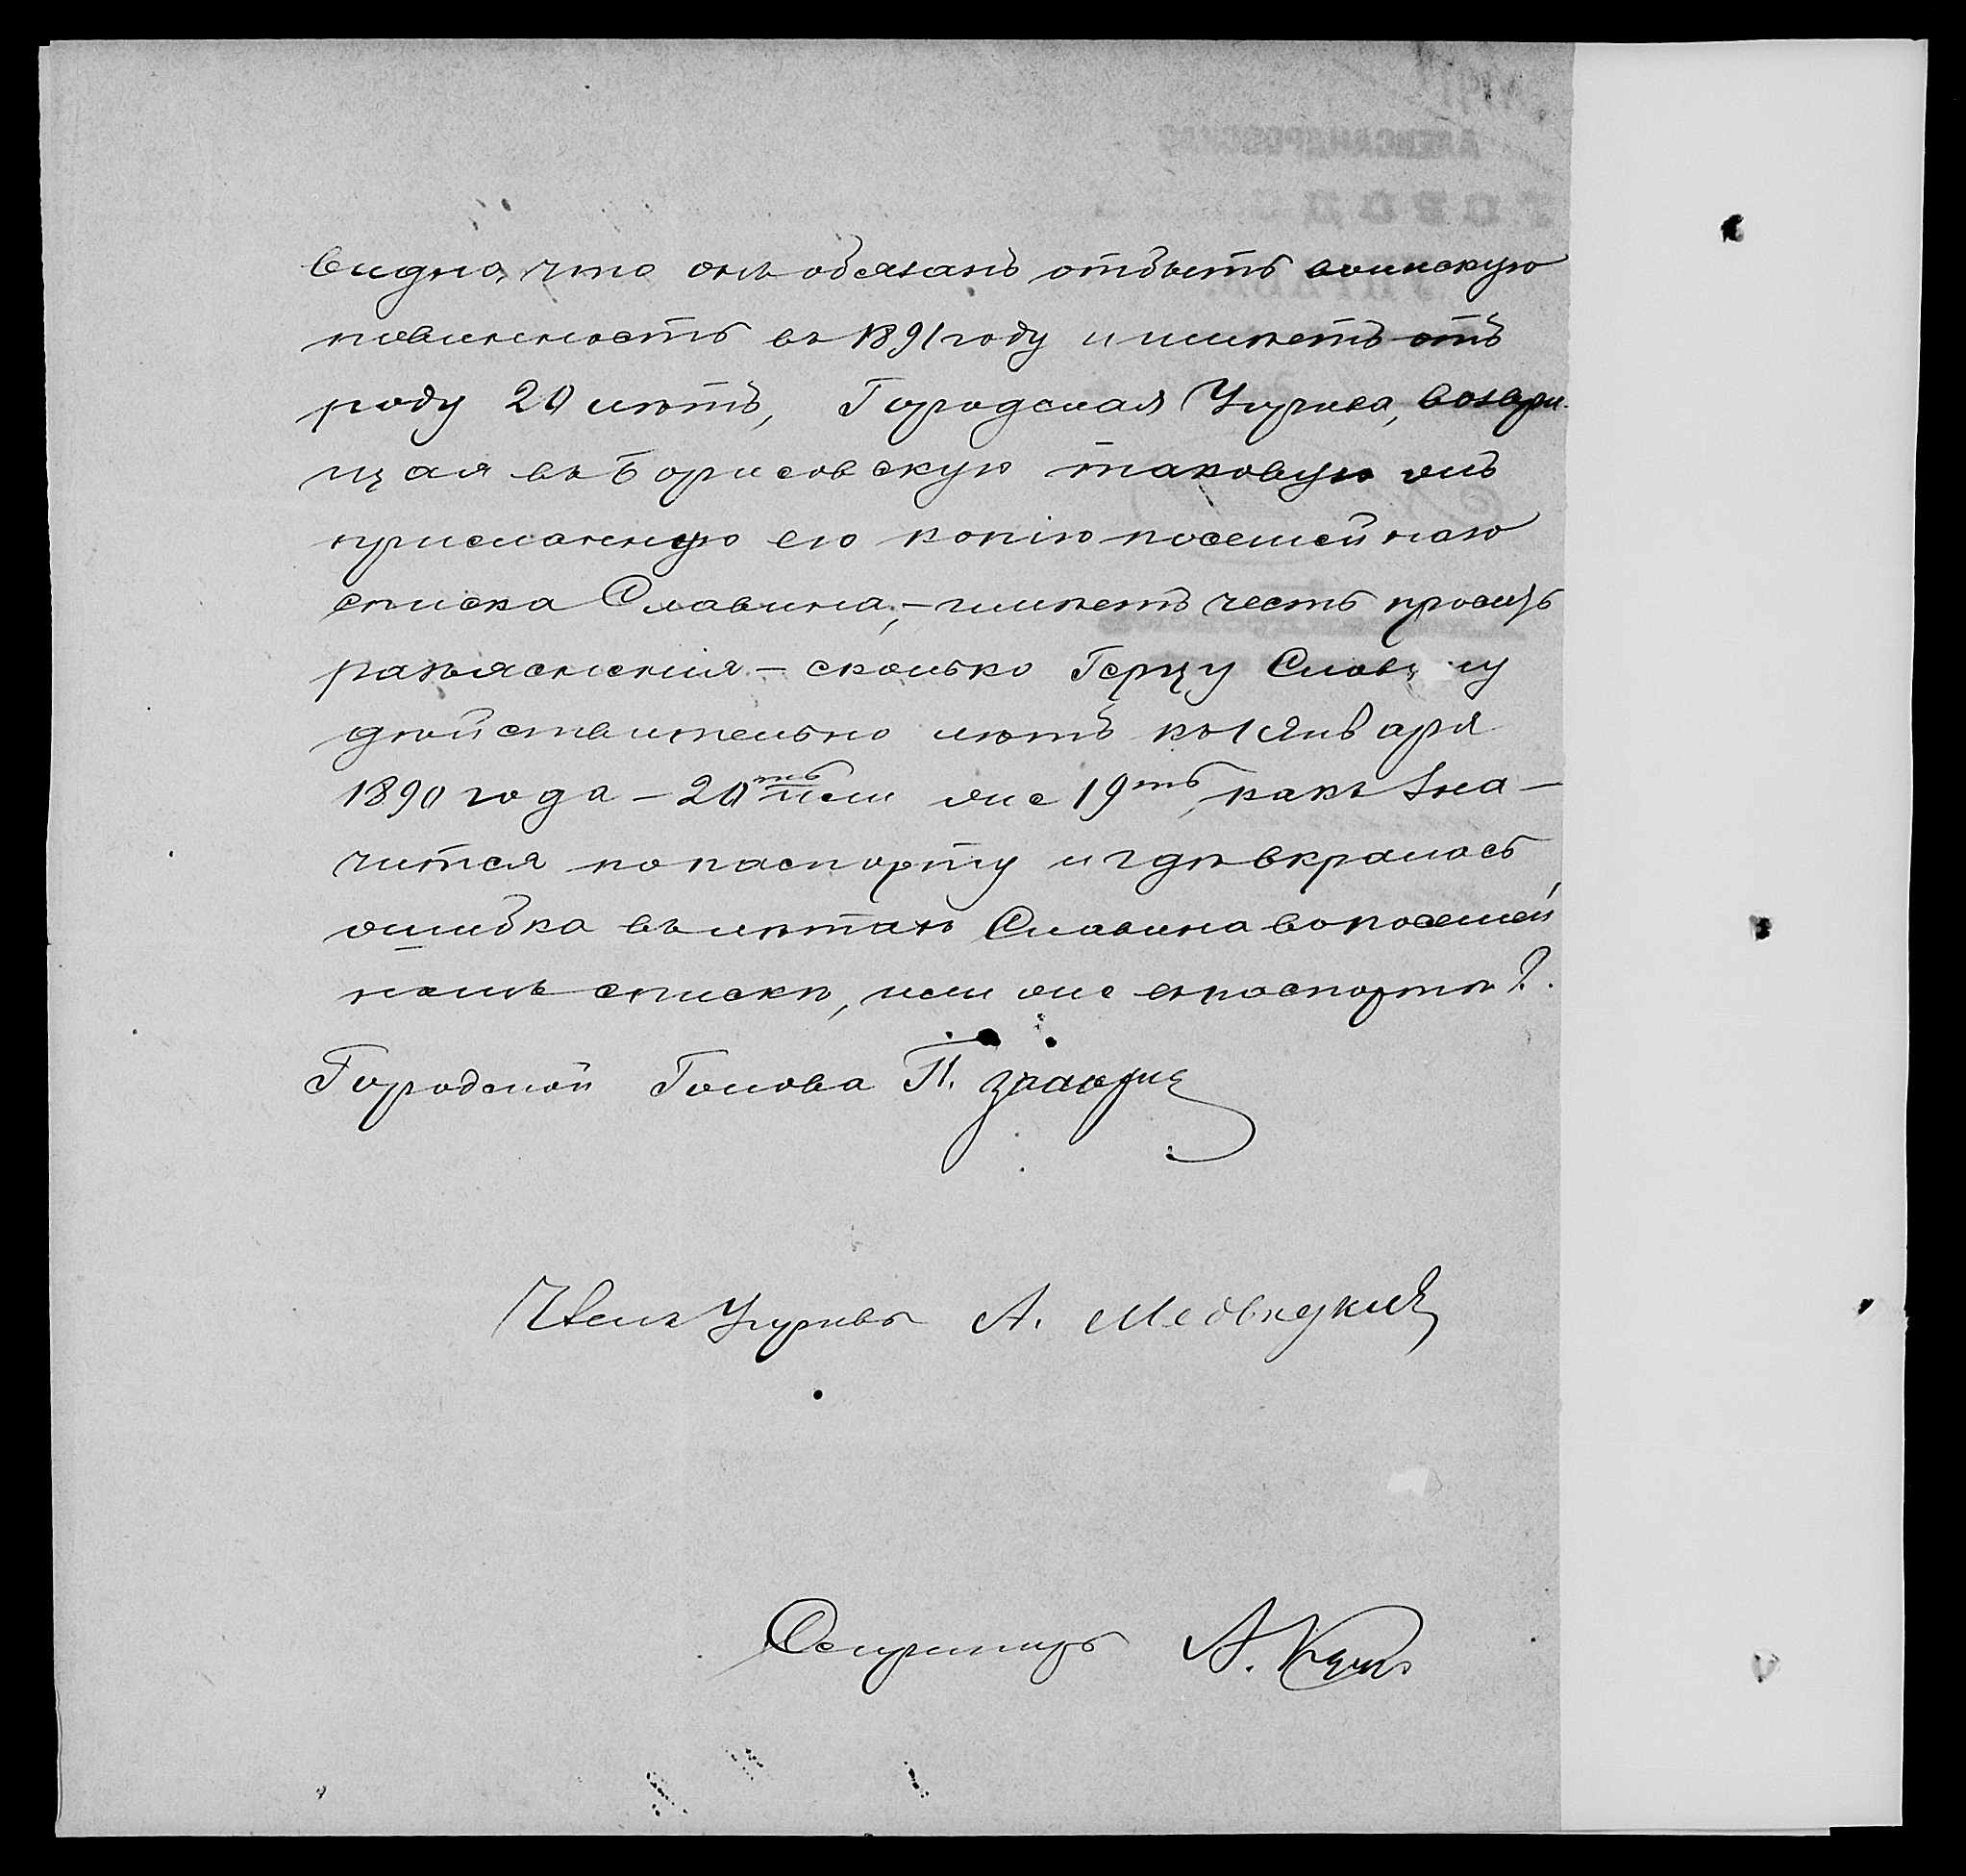 видно, что онъ обязанъ отбыть воинскую
повинность въ 1891 году и имѣетъ отъ
роду 20 лѣтъ, Городская Управа, возвра-
щая въ Борисовскую таковую жъ
присланную ею копію посемейнаго
списка Славина, – имѣетъ честь просить
разъясненія – сколько Герцу Славину
дѣйствительно лѣтъ къ 1 Января
1890 года – 20ть или же 19ть, какъ зна-
чится по паспорту и гдѣ вкралась
ошибка въ лѣтахъ Славина въ посемей
номъ спискѣ, или же въ паспортѣ?.
Городской Голова П.
Членъ Управы А. Медвѣдкинъ
Секретарь А.